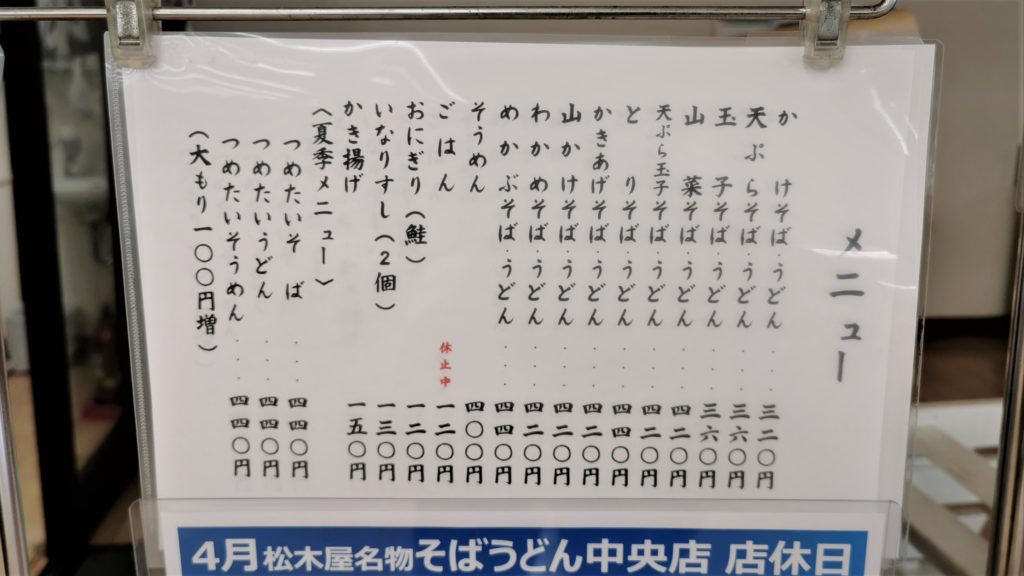 メニュー
かけそば・うどん....三二〇円
天ぷらそば・うどん....三六〇円
玉子そば・うどん....三六〇円
山菜そば・うどん....四二〇円
天ぷら玉子そば・うどん....四二〇円
とりそば・うどん....四四〇円
かきあげそば・うどん....四二〇円
山かけそば・うどん....四二〇円
わかめそば・うどん....四二〇円
めかぶそば・うどん....四四〇円
そうめん 四〇〇円
ごはん 休止中 一二〇円
おにぎり(鮭) 一二〇円
いなりすし(2個) 一三〇円
かき揚げ 一五〇円
〈夏季メニュー〉
つめたいそば....四四〇円
つめたいうどん....四四〇円
つめたいそうめん....四四〇円
(大もり一〇〇円増)
4月松木屋名物そばうどん中央店 店休日